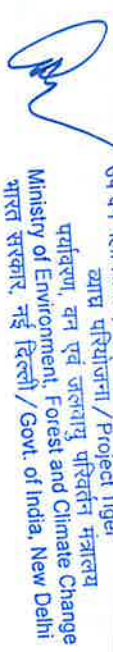 व्याघ्र परियोजना / Project Tiger
पर्यावरण, वन एवं जलवायु परिवर्तन मंत्रालय
Ministry of Environment, Forest and Climate Change
भारत सरकार, नई दिल्ली / Govt. of India, New Delhi